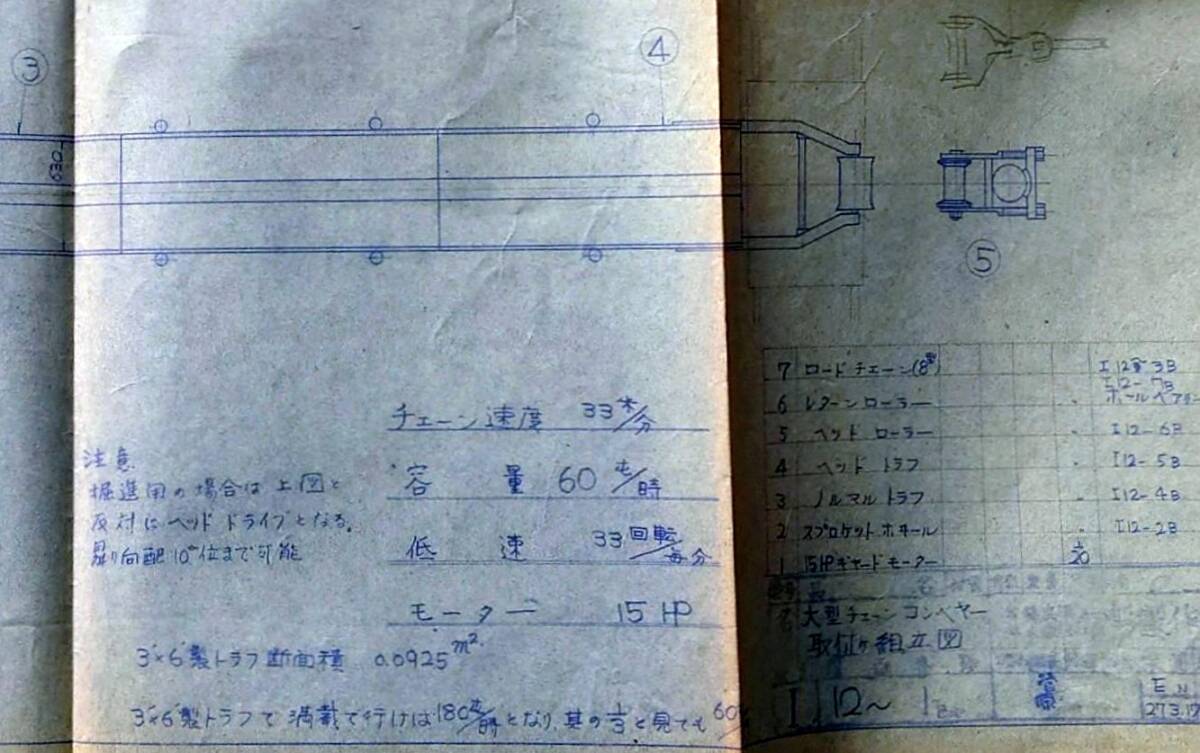 ③
④
630
⑤
チェーン速度 33米/分
容量 60t/時
低速 33回転/毎分
モーター 15HP
注意
掘進用の場合は上図と
反対にヘッドドライブとなる。
昇り向配10°位まで可能
3'×6'製トラフ断面積 0.0925m²
3'×6'製トラフで満載で行けば180t/時となり、其の1/3と見ても60
7 ロードチェーン(8") I12-3B
6 レターンローラー I12-7B
5 ヘッドローラー I12-6B
4 ヘッドトラフ I12-5B
3 ノルマルトラフ I12-4B
2 スプロケットホヰール I12-2B
1 15HPギヤードモーター
大型チェーンコンベヤー
取付ヶ組立図
I 12~1
27.3.17